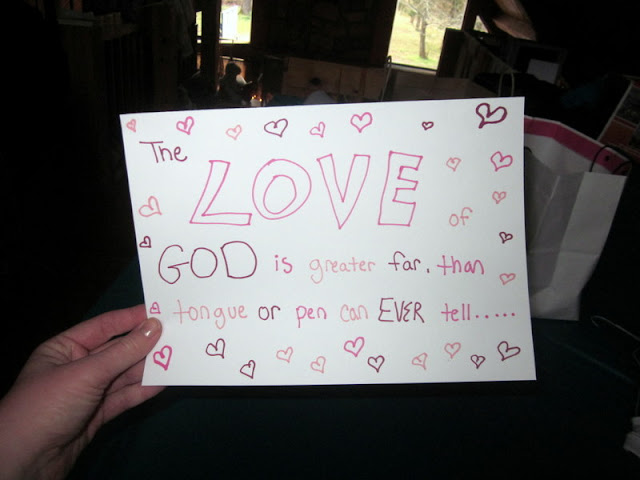 The
LOVE
of
GOD is greater far. than
tongue or pen can EVER tell.....